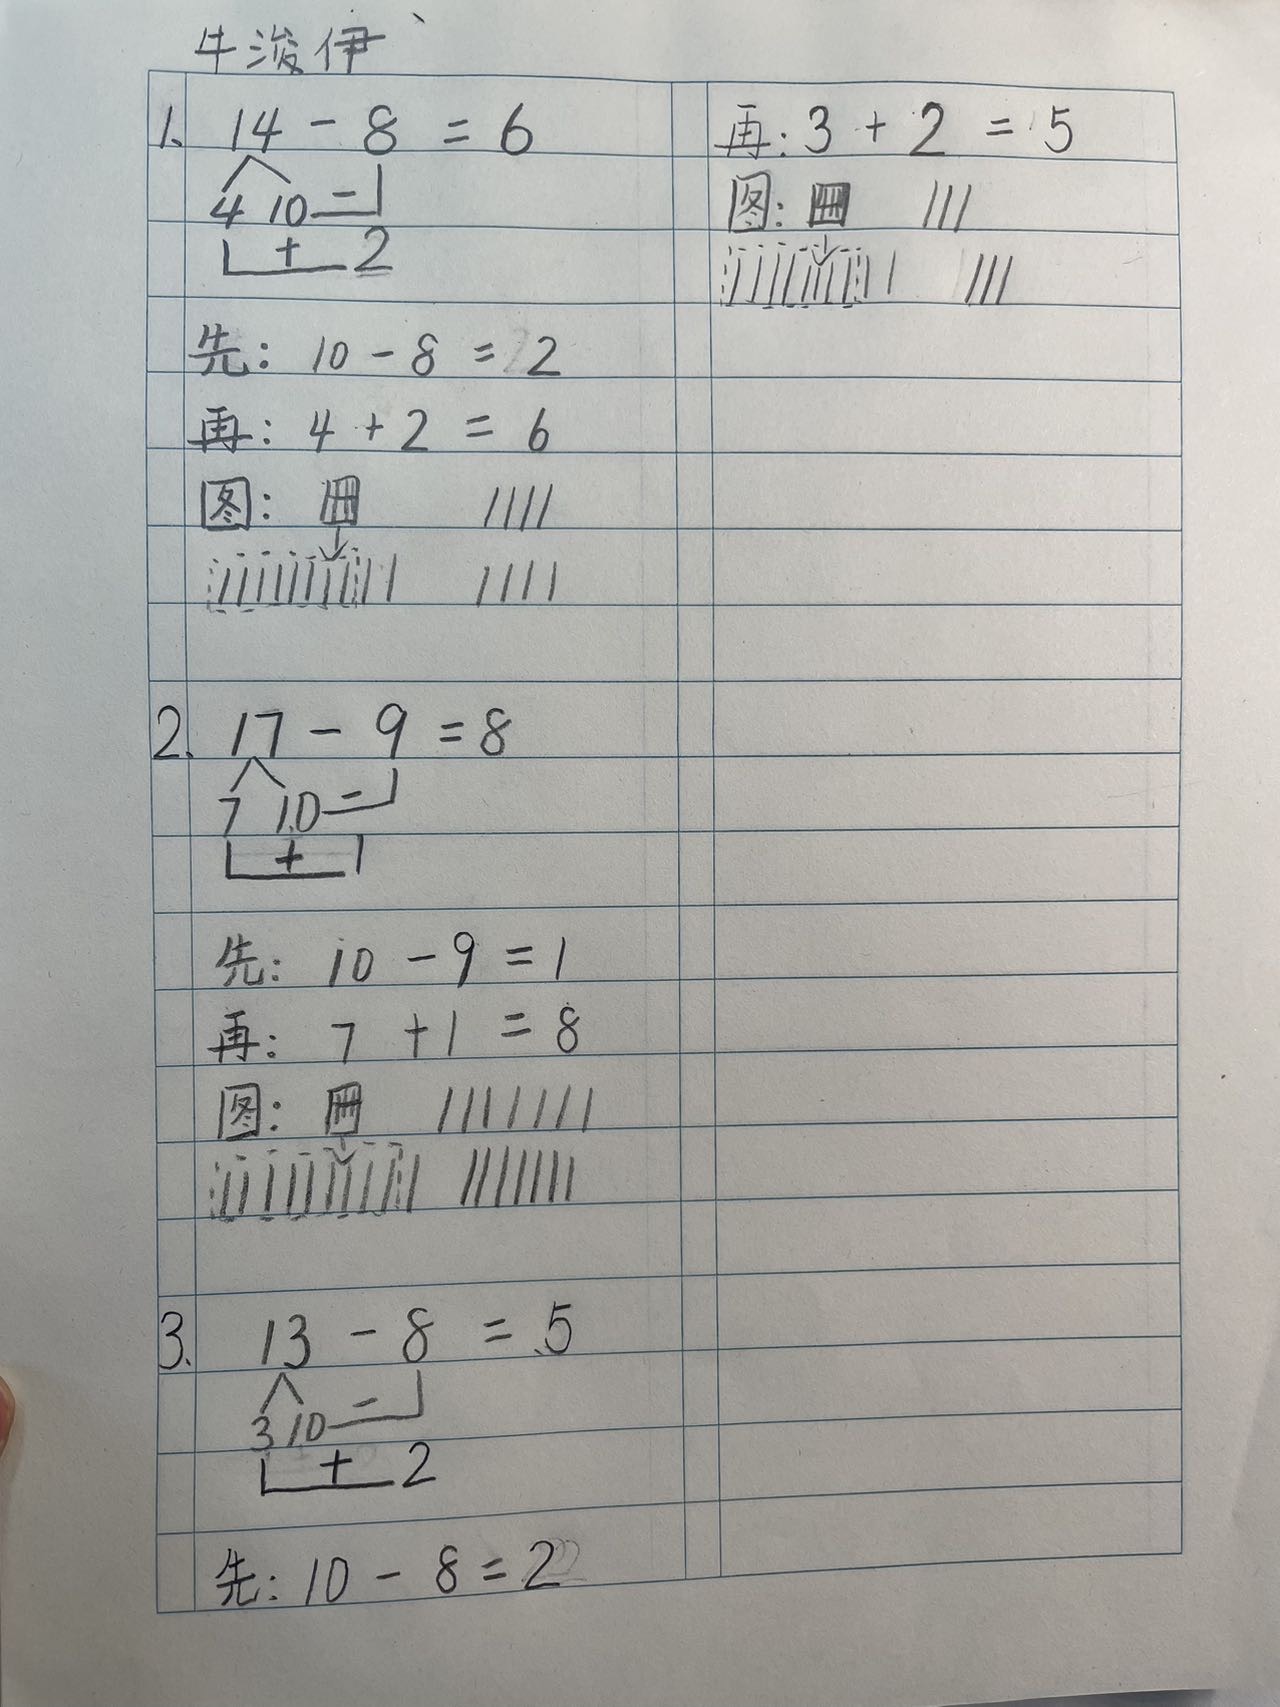 牛浚伊
1. 14 - 8 = 6
4 10 -
+ 2
先: 10 - 8 = 2
再: 4 + 2 = 6
图:
2. 17 - 9 = 8
7 10 -
+ 1
先: 10 - 9 = 1
再: 7 + 1 = 8
图:
3. 13 - 8 = 5
3 10 -
+ 2
先: 10 - 8 = 2
再: 3 + 2 = 5
图: